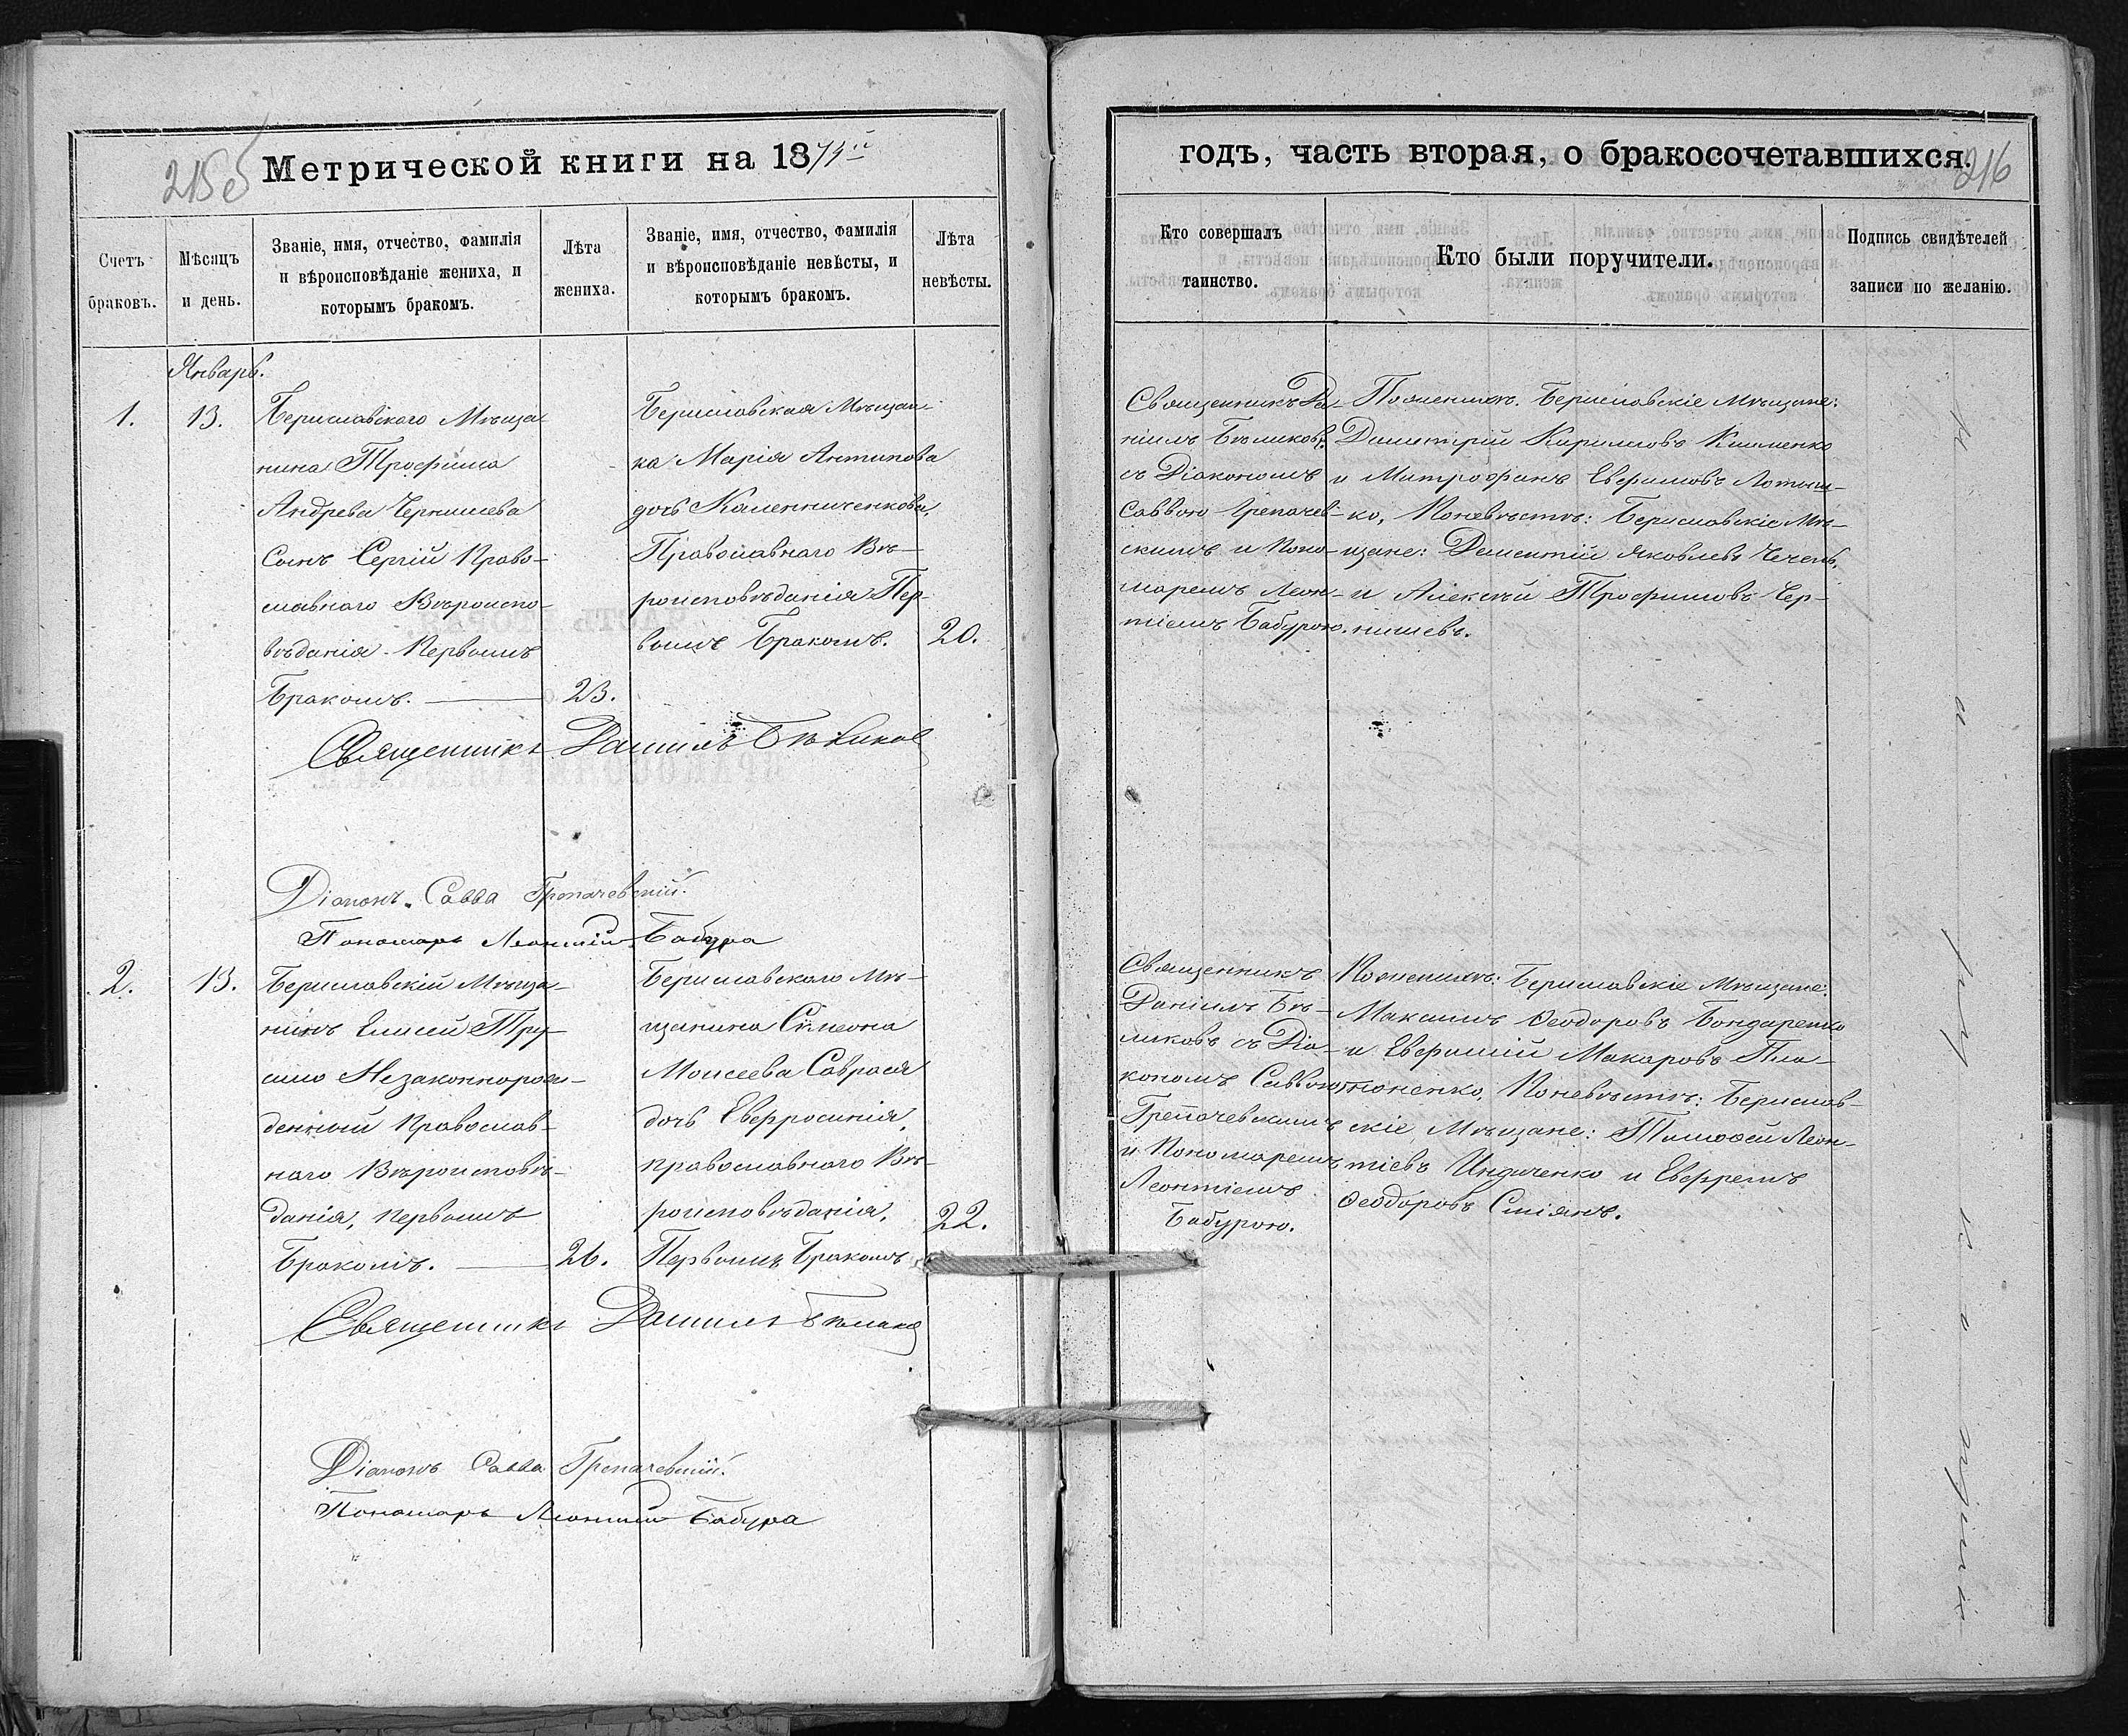 215 об
Метрической книги на 1874й
Счетъ браковъ.
Мѣсяцъ и день.
Званіе, имя, отчество, фамилія
и вѣроисповѣданіе жениха, и
которымъ бракомъ.
Лѣта
жениха.
Званіе, имя, отчество, фамилія
и вѣроисповѣданіе невѣсты, и
которымъ бракомъ.
Лѣта
невѣсты.
Январь.
1.
13.
Бериславскаго Мѣща-
нина Трофима
Андрева Чернишева
Сынъ Сергій Право-
славнаго Вѣроиспо-
вѣданія Первымъ
Бракомъ.
23.
Бериславская Мѣщан-
ка Марія Антипова
дочь Каменниченкова,
Православнаго Вѣ-
роисповѣданія Пер-
вымъ Бракомъ.
20.
Священникъ Даніилъ Бѣликов
Діаконъ Савва Грепачевскій.
Пономарь Леонтій Бабура
2.
13.
Бериславскій Мѣща-
нинъ Елисей Тру-
Незаконнорож-
денный Православ-
наго Вѣроисповѣ-
данія, Первымъ
Бракомъ.
26.
Бериславскаго Мѣ-
щанина Симеона
Моисеева Саврася
дочь Евфросинія,
православнаго Вѣ-
роисповѣданія,
Первымъ Бракомъ
22.
Священникъ Даніилъ Бѣликов
Діаконъ Савва Грепачевскій.
Пономарь Леонтій Бабура
годъ, часть вторая, о бракосочетавшихся.
216
Кто совершалъ
таинство.
Кто были поручители.
Подпись свидѣтелей
записи по желанію.
Священникъ Да-
ніилъ Бѣликовъ
съ Діакономъ
Саввою Грепачев-
скимъ и Поно-
маремъ Леон-
тіемъ Бабурою.
Поженихѣ. Бериславскіе Мѣщане:
Димитрій Кириловъ Клименко
и Митрофанъ Евфимовъ Лотыш-
ко, Поневѣстѣ: Бериславскіе Мѣ-
щане: Дементій Яковлевъ Чечель,
и Алексѣй Трофимовъ Чер-
нишевъ.
Священникъ
Даніилъ Бѣ-
ликовъ съ Діа-
кономъ Саввою
Грепачевскимъ
и Пономаремъ
Леонтіемъ
Бабурою.
Поженихѣ: Бериславскіе Мѣщане:
Максимъ Ѳеодоровъ Бондаренко
и Евфимій Макаровъ Пла-
тоненко, Поневѣстѣ: Берислав-
скіе Мѣщане: Тимоѳей Леон-
тіевъ Индиченко и Ефремъ
Ѳеодоровъ